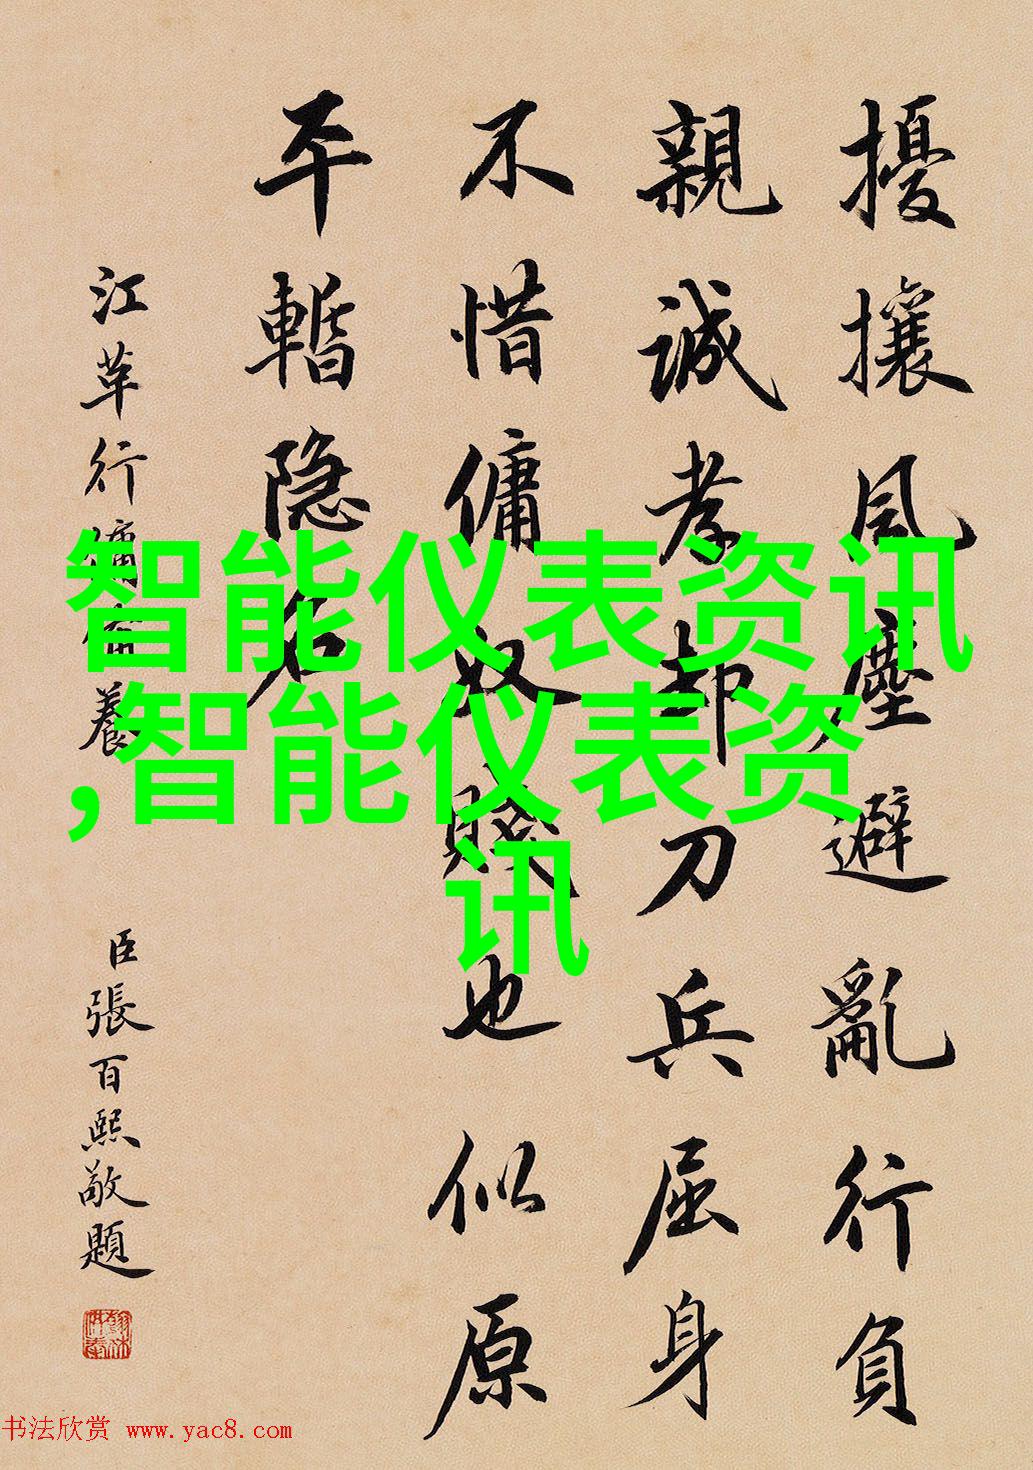 擾攘風塵避亂行負
親誠孝却刀兵屈身
不惜傭奴賤也似原
平暫隐名
江革行傭養
臣張百熙敬題
智能仪表资讯
,智能仪表资
讯
书法欣赏 www.yac8.com